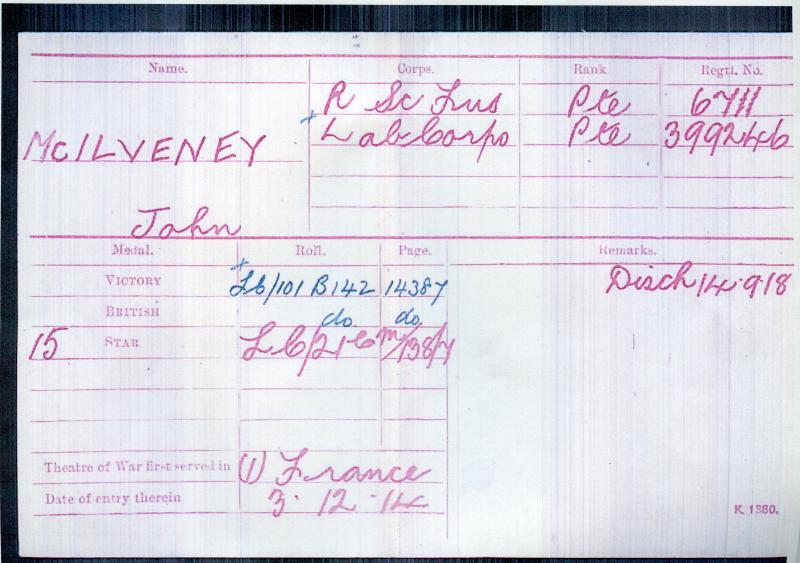 Name. Corps. Rank. Regtl. No.
R Sc Fus Pte 6711
+ Lab Corps Pte 399246
McILVENEY
John
Medal. Roll. Page. Remarks.
VICTORY + Lb/101 B142 14387 Disch 14.9.18
BRITISH do. do.
15 STAR
Theatre of War first served in (1) France
Date of entry therein 3.12.14
K. 1380.